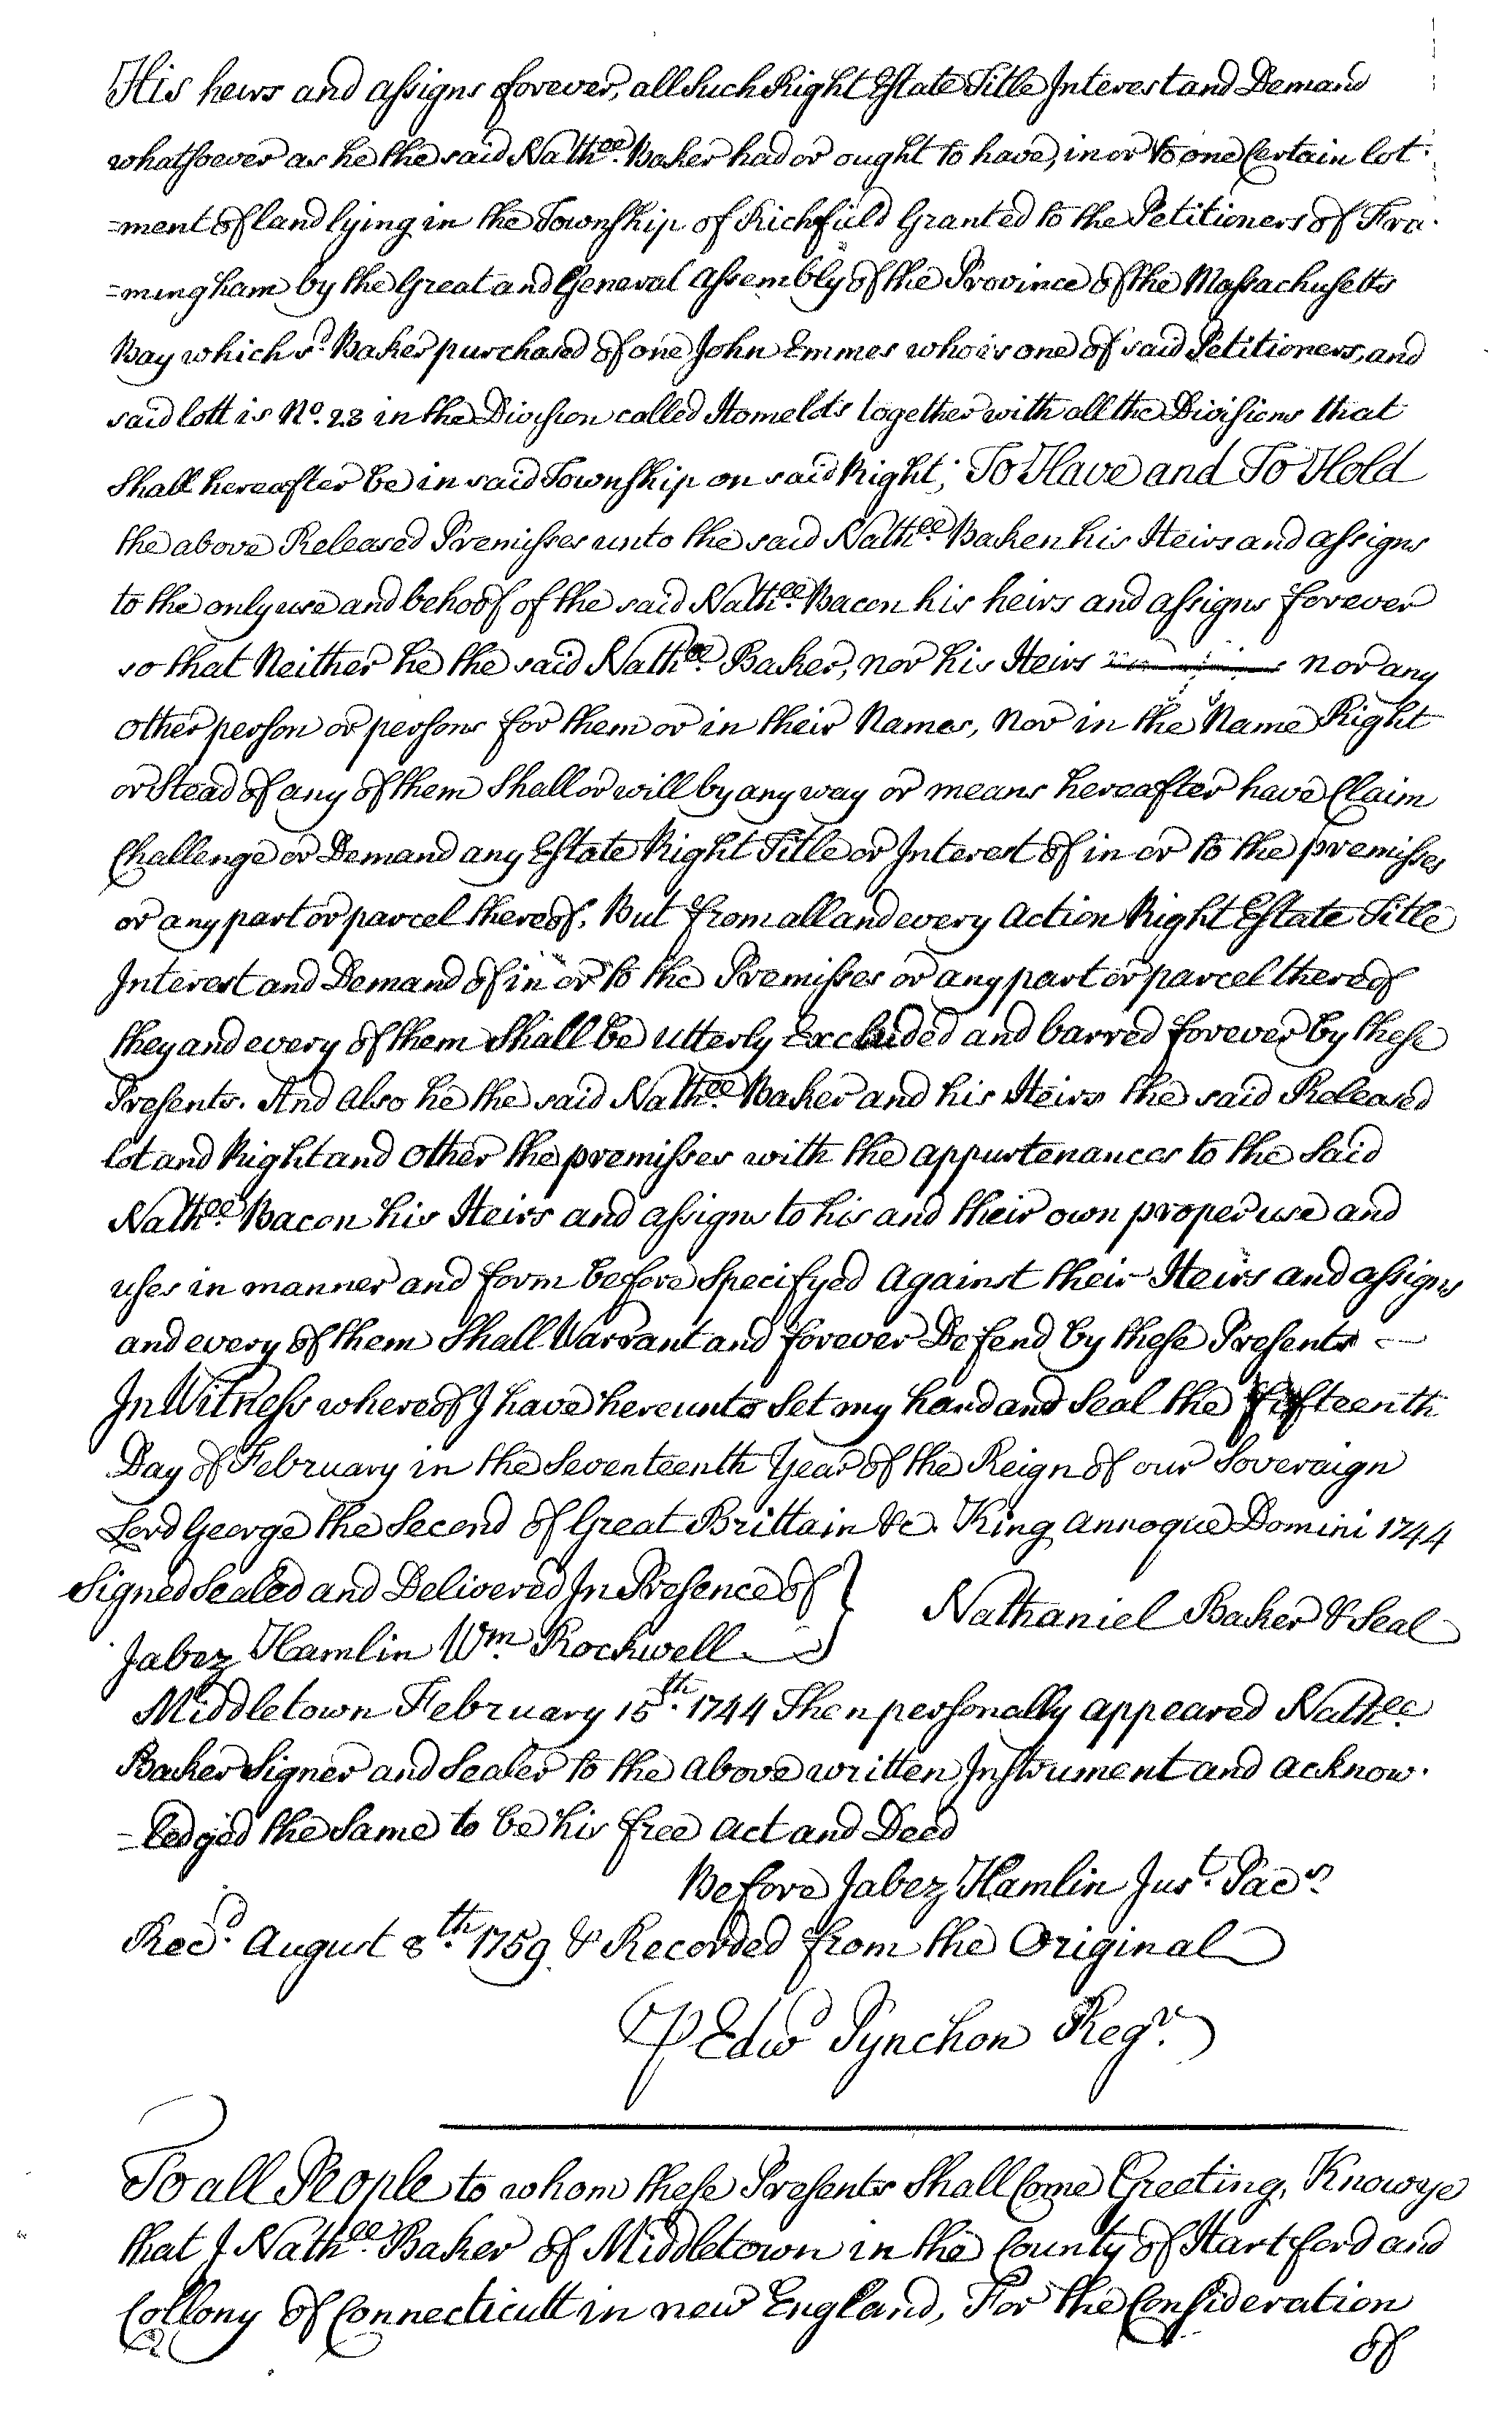 His heirs and assigns forever, all Such Right Estate Title Interest and Demand
whatsoever as he the said Nathll. Baker had or ought to have, in or to one Certain lot
=ment of land lying in the Township of Richfield Granted to the Petitioners of Fra-
=mingham by the Great and General Assembly of the Province of the Massachusetts
Bay which sd. Baker purchased of one John Emmes who is one of said Petitioners, and
said lott is No. 23 in the Division called Homelots together with all the Divisions that
Shall hereafter be in said Township on said Right; To Have and To Hold
the above Released Premisses unto the said Nathll. Baken his Heirs and assigns
to the only use and behoof of the said Nathll. Bacon his heirs and assigns forever
so that Neither he the said Nathll. Baker, nor his Heirs nor any
other person or persons for them or in their Names, Nor in the Name Right
or Stead of any of them Shall or will by any way or means hereafter have Claim
Challenge or Demand any Estate Right Title or Interest of in or to the premisses
or any part or parcel thereof, But from all and every Action Right Estate Title
Interest and Demand of in or to the Premisses or any part or parcel thereof
they and every of them Shall be utterly Excluded and barred forever by these
Presents. And also he the said Nathll. Baker and his Heirs the said Released
lot and Right and other the premisses with the appurtenances to the Said
Nathll. Bacon his Heirs and assigns to his and their own proper use and
uses in manner and form before Specifyed Against their Heirs and assigns
and every of them Shall Warrant and forever Defend by these Presents
In Witness whereof I have hereunto Set my hand and Seal the fifteenth
Day of February in the Seventeenth Year of the Reign of our Soveraign
Lord George the Second of Great Brittain &c. King Annoque Domini 1744
Signed Sealed and Delivered In Presence of } Nathaniel Baker & Seal
Jabez Hamlin Wm. Rockwell
Middletown February 15th. 1744 Then personally appeared Nathll
Baker Signer and Sealer to the above written Instrument and acknow-
=ledged the Same to be his free Act and Deed
Before Jabez Hamlin Just. Pacs.
Recd. August 8th. 1759 & Recorded from the Original
P Edwd Pynchon Regr.
To all People to whom these Presents Shall Come Greeting, Know ye
that I Nathll. Baker of Middletown in the County of Hartford and
Collony of Connecticutt in new England, For the Consideration
of